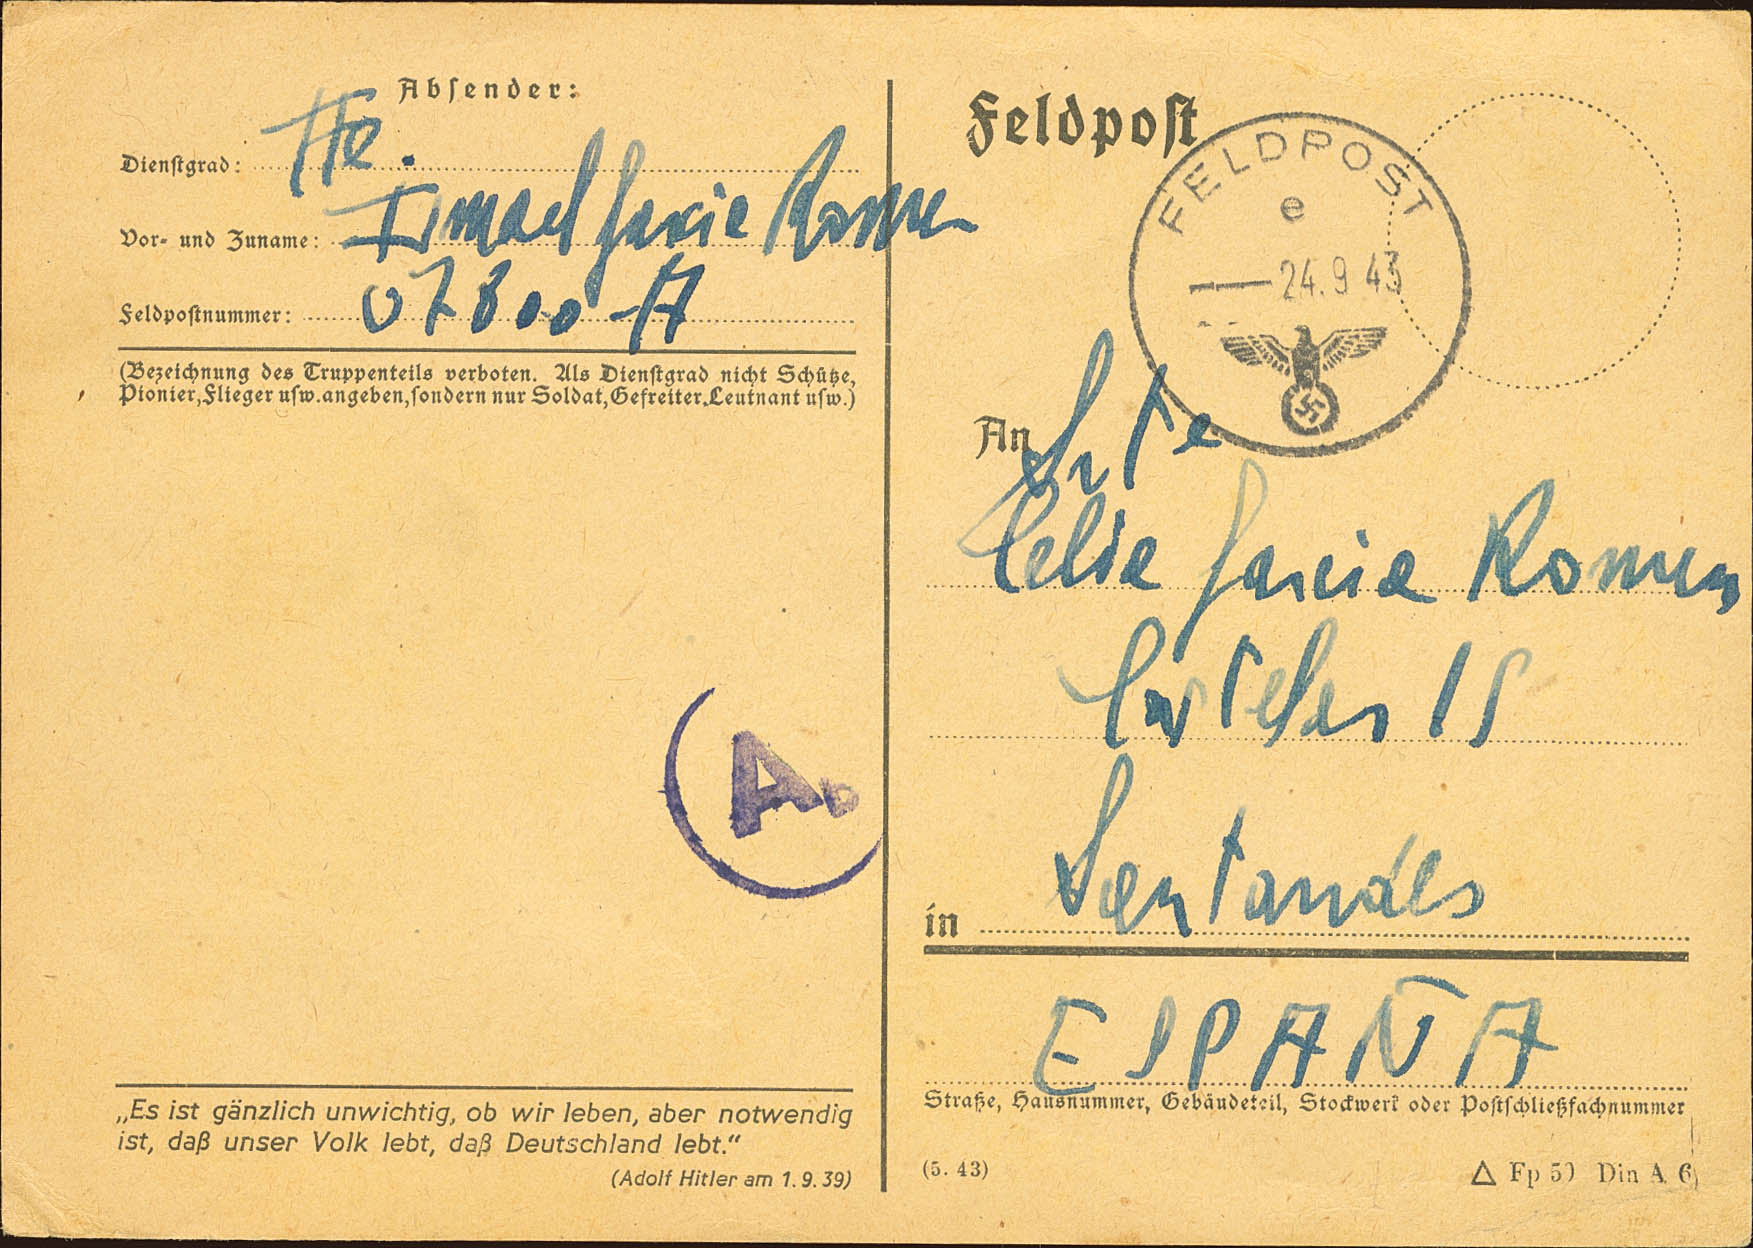 Absender:
Dienstgrad: Tte.
Vor- und Zuname: Ismael Garcia Romero
Feldpostnummer: 07800-A
(Bezeichnung des Truppenteils verboten. Als Dienstgrad nicht Schütze,
Pionier, Flieger usw. angeben, sondern nur Soldat, Gefreiter, Leutnant usw.)
A
b
„Es ist gänzlich unwichtig, ob wir leben, aber notwendig
ist, daß unser Volk lebt, daß Deutschland lebt.“
(Adolf Hitler am 1.9.39)
Feldpost
FELDPOST
e
24.9.43
An Srta
Celia Garcia Romero
15
in Santander
ESPAÑA
Straße, Hausnummer, Gebäudeteil, Stockwerk oder Postschließfachnummer
(5. 43)
△ Fp 50 Din A 6